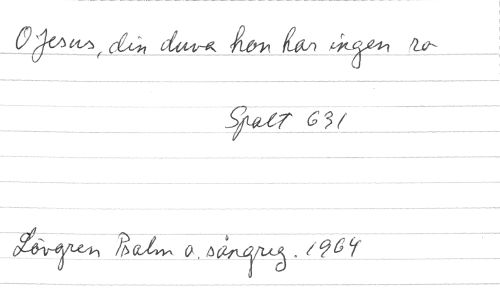 O Jesus, din duva hon har ingen ro
Spalt 631
Lövgren Psalm o. sångreg. 1964